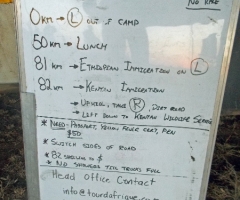 NO RIDE
0KM → L OUT OF CAMP
50KM → LUNCH
81 KM → ETHIOPIAN IMMIGRATION ON L
82KM → KENYAN IMMIGRATION
→ UPHILL, TAKE R, DIRT ROAD
→ LEFT DOWN TO KENYAN WILDLIFE SERVICE
* NEED - PASSPORT, YELLOW FEVER CERT, PEN
$50
* SWITCH SIDES OF ROAD
* 82 $
* NO SHOWERS TIL TRUCKS FULL
Head Office Contact
info@tourdafrique.co